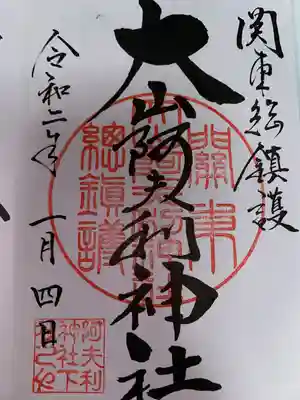 関東総鎮護
大山阿夫利神社
令和二年 一月四日
關東
總鎮護
阿夫利
神社下